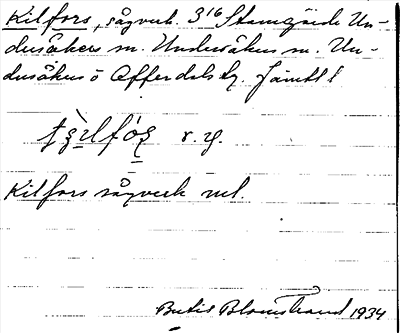 Kilfors, sågverk. 3¹⁶ Stamgärde Un-
dersåkers sn. Undersåkers sn. Un-
dersåkers o Offerdals tg. Jämtl l
r. ɥ.
Kilfors sågverk vel.
Bertil Blomstrand 1934